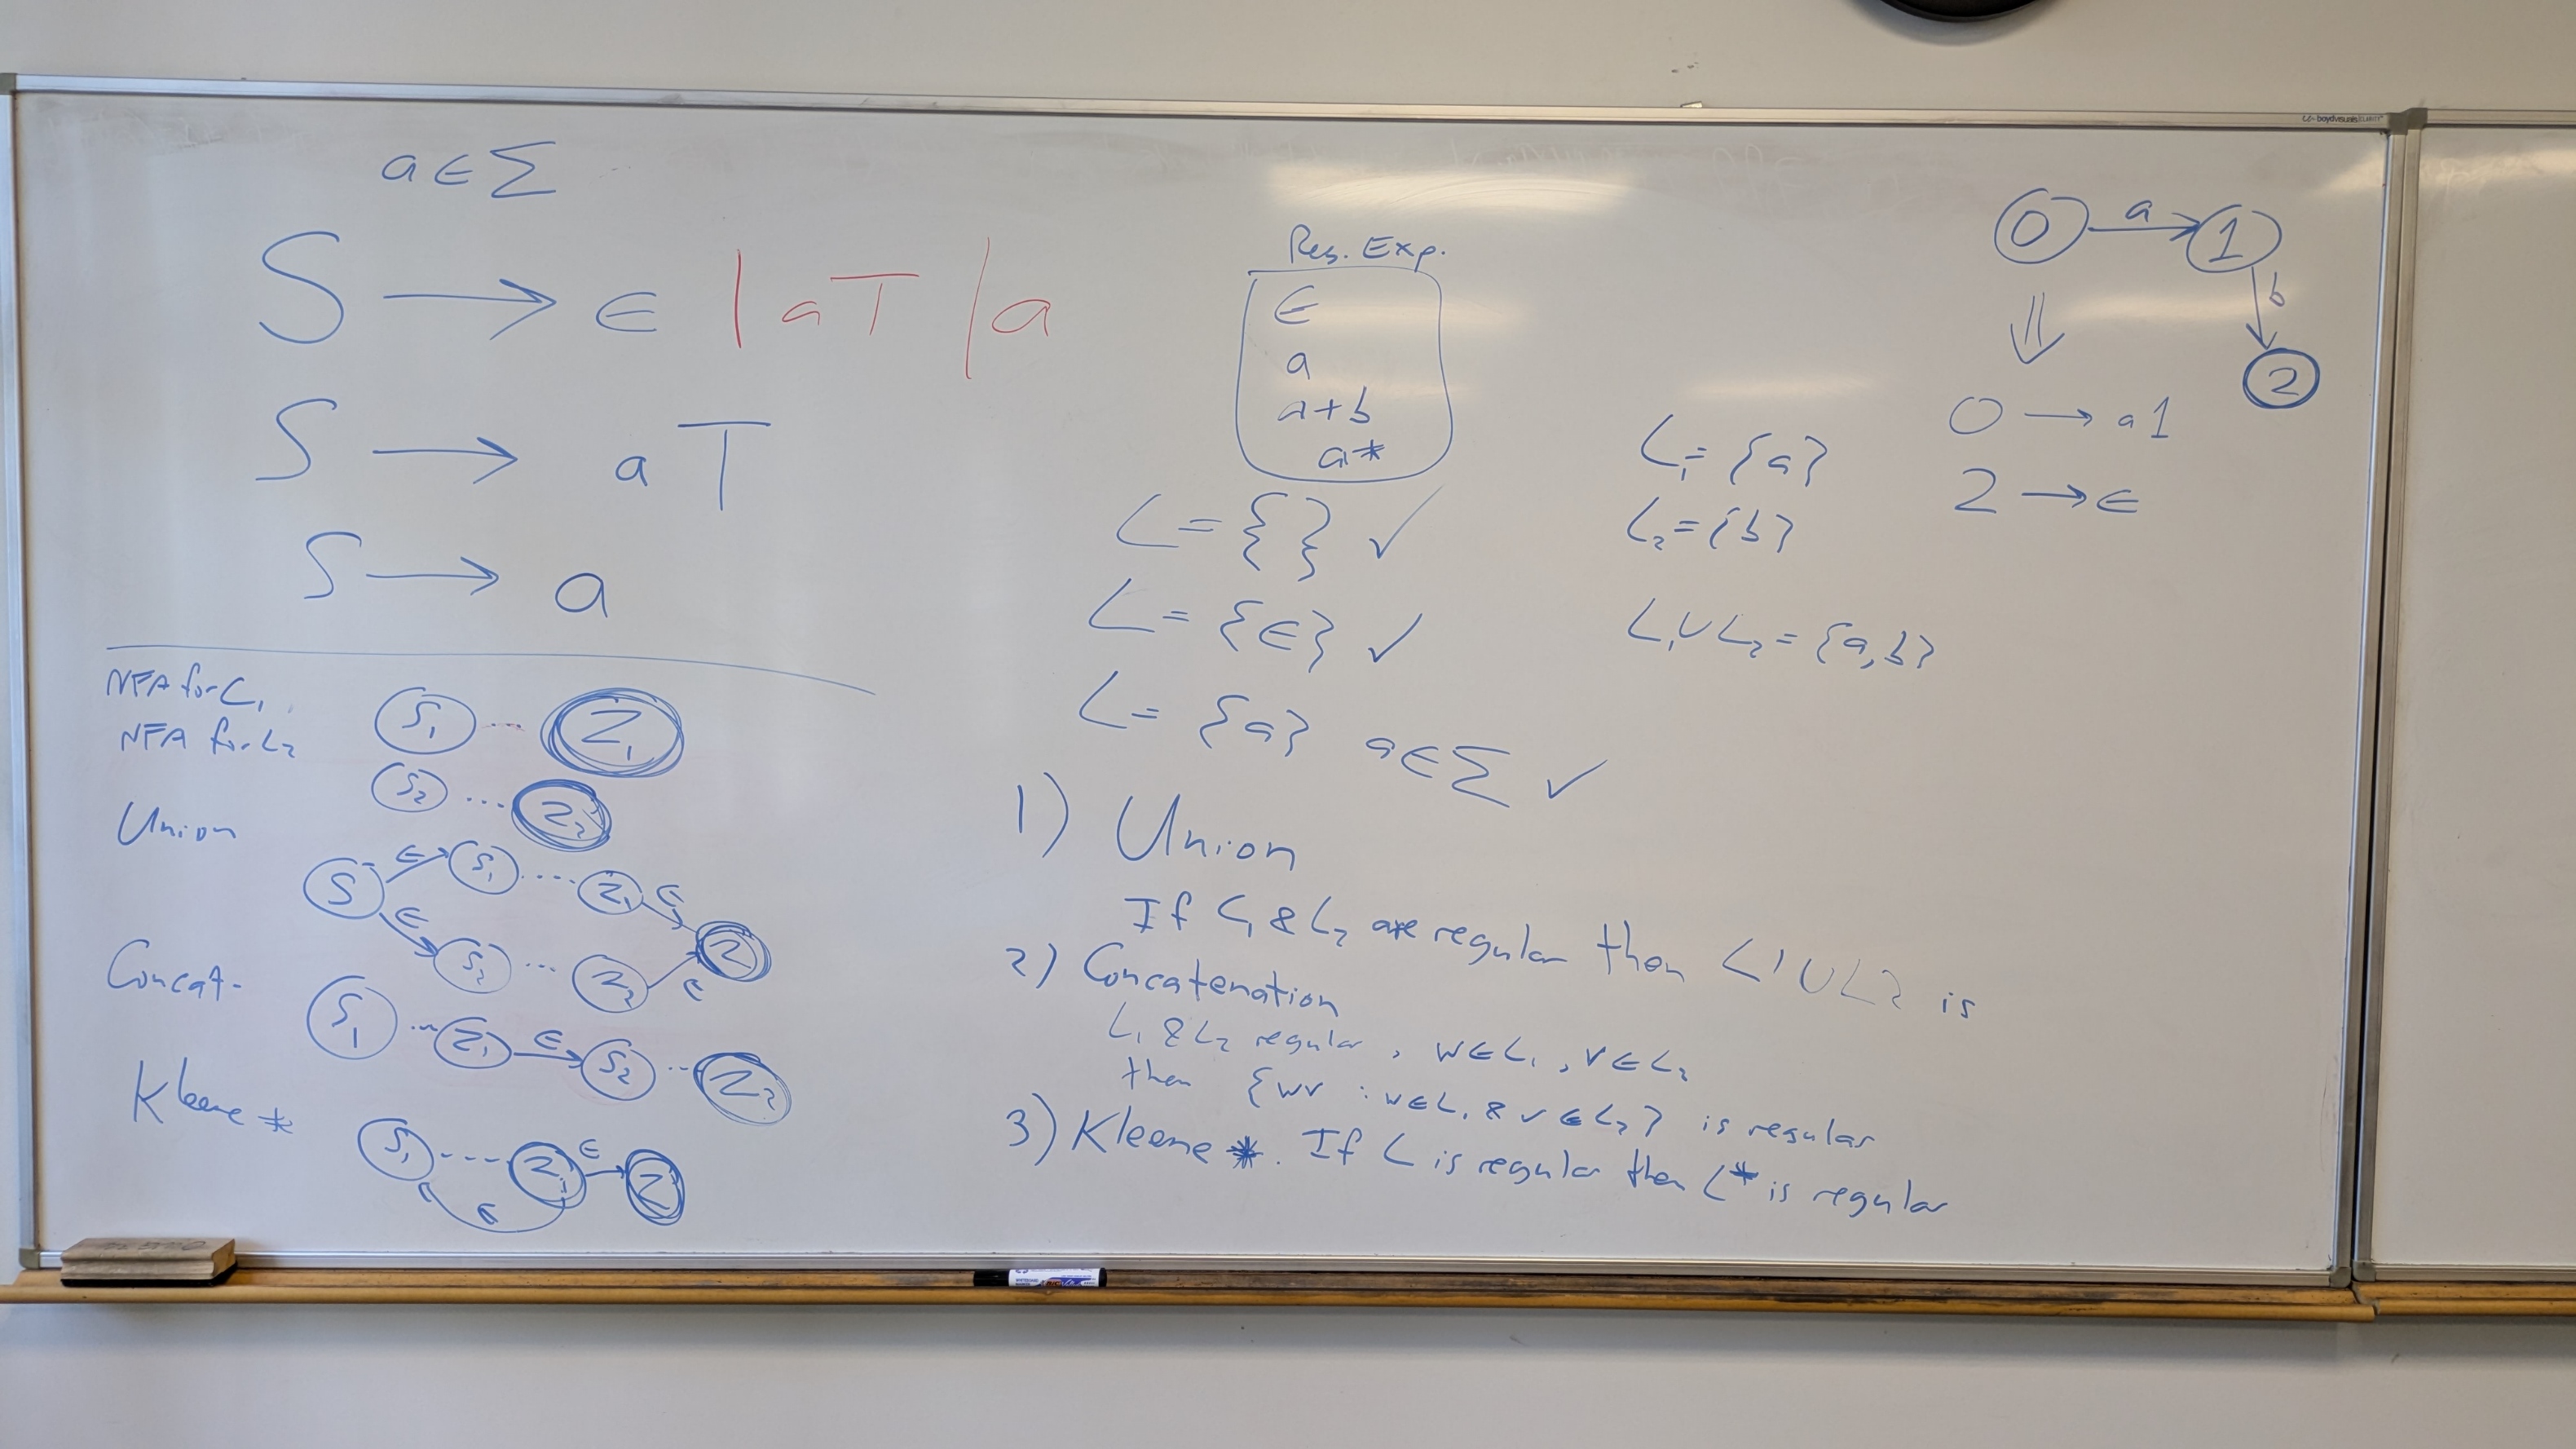 a ∈ Σ
S → ∈ | aT | a
S → aT
S → a
NFA for L₁
NFA for L₂
S₁ --- Z₁
S₂ ... Z₂
Union
S ∈ S₁ .... Z₁ ∈ Z
∈ S₂ ... Z₂ ∈
Concat.
S₁ ... Z₁ ∈ S₂ ... Z₂
Kleene *
S₁ ---- Z₁ ∈ Z
∈
Reg. Exp.
∈
a
a+b
a*
L = {} ✓
L = {∈} ✓
L = {a} a∈Σ ✓
1) Union
If L₁ & L₂ are regular then L1 ∪ L2 is
2) Concatenation
L₁ & L₂ regular, w∈L₁, v∈L₂
then {wv : w∈L₁ & v∈L₂} is regular
3) Kleene *. If L is regular then L* is regular
L₁ = {a}
L₂ = {b}
L₁∪L₂ = {a,b}
0 a 1
b
2
⇓
0 → a1
2 → ∈